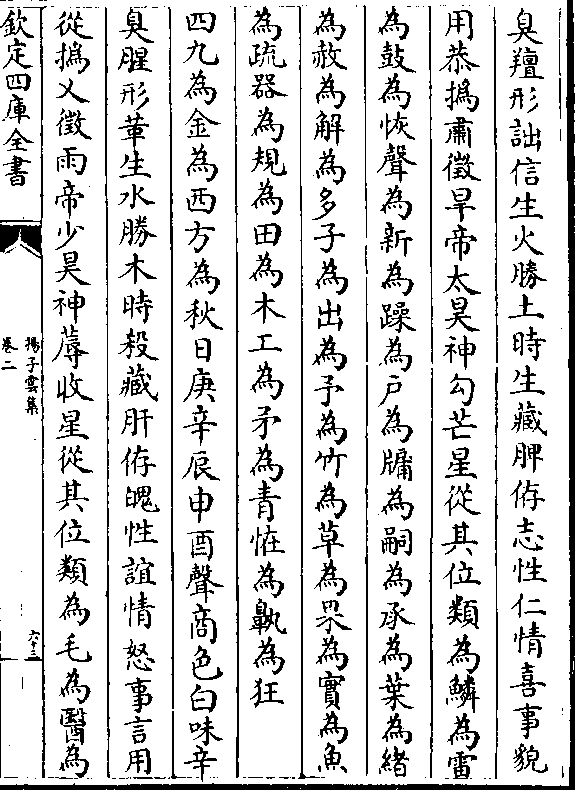 臭羶形詘信生火勝土時生藏脾侟志性仁情喜事貌
用恭撝肅徵旱帝太昊神勾芒星從其位類為鱗為雷
為鼓為恢聲為新為躁為戶為牖為嗣為承為葉為緒
為赦為解為多子為出為予為竹為草為果為實為魚
為疏器為規為田為木工為矛為青怪為鼽為狂
四九為金為西方為秋日庚辛辰申酉聲商色白味辛
臭腥形革生水勝木時殺藏肝侟魄性誼情怒事言用
從撝乂徵雨帝少昊神蓐收星從其位類為毛為醫為
欽定四庫全書
揚子雲集
卷二
六十三